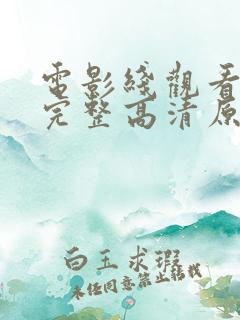 電影綫觀看
完整高清原
白玉求瑕
未经同意禁止转载